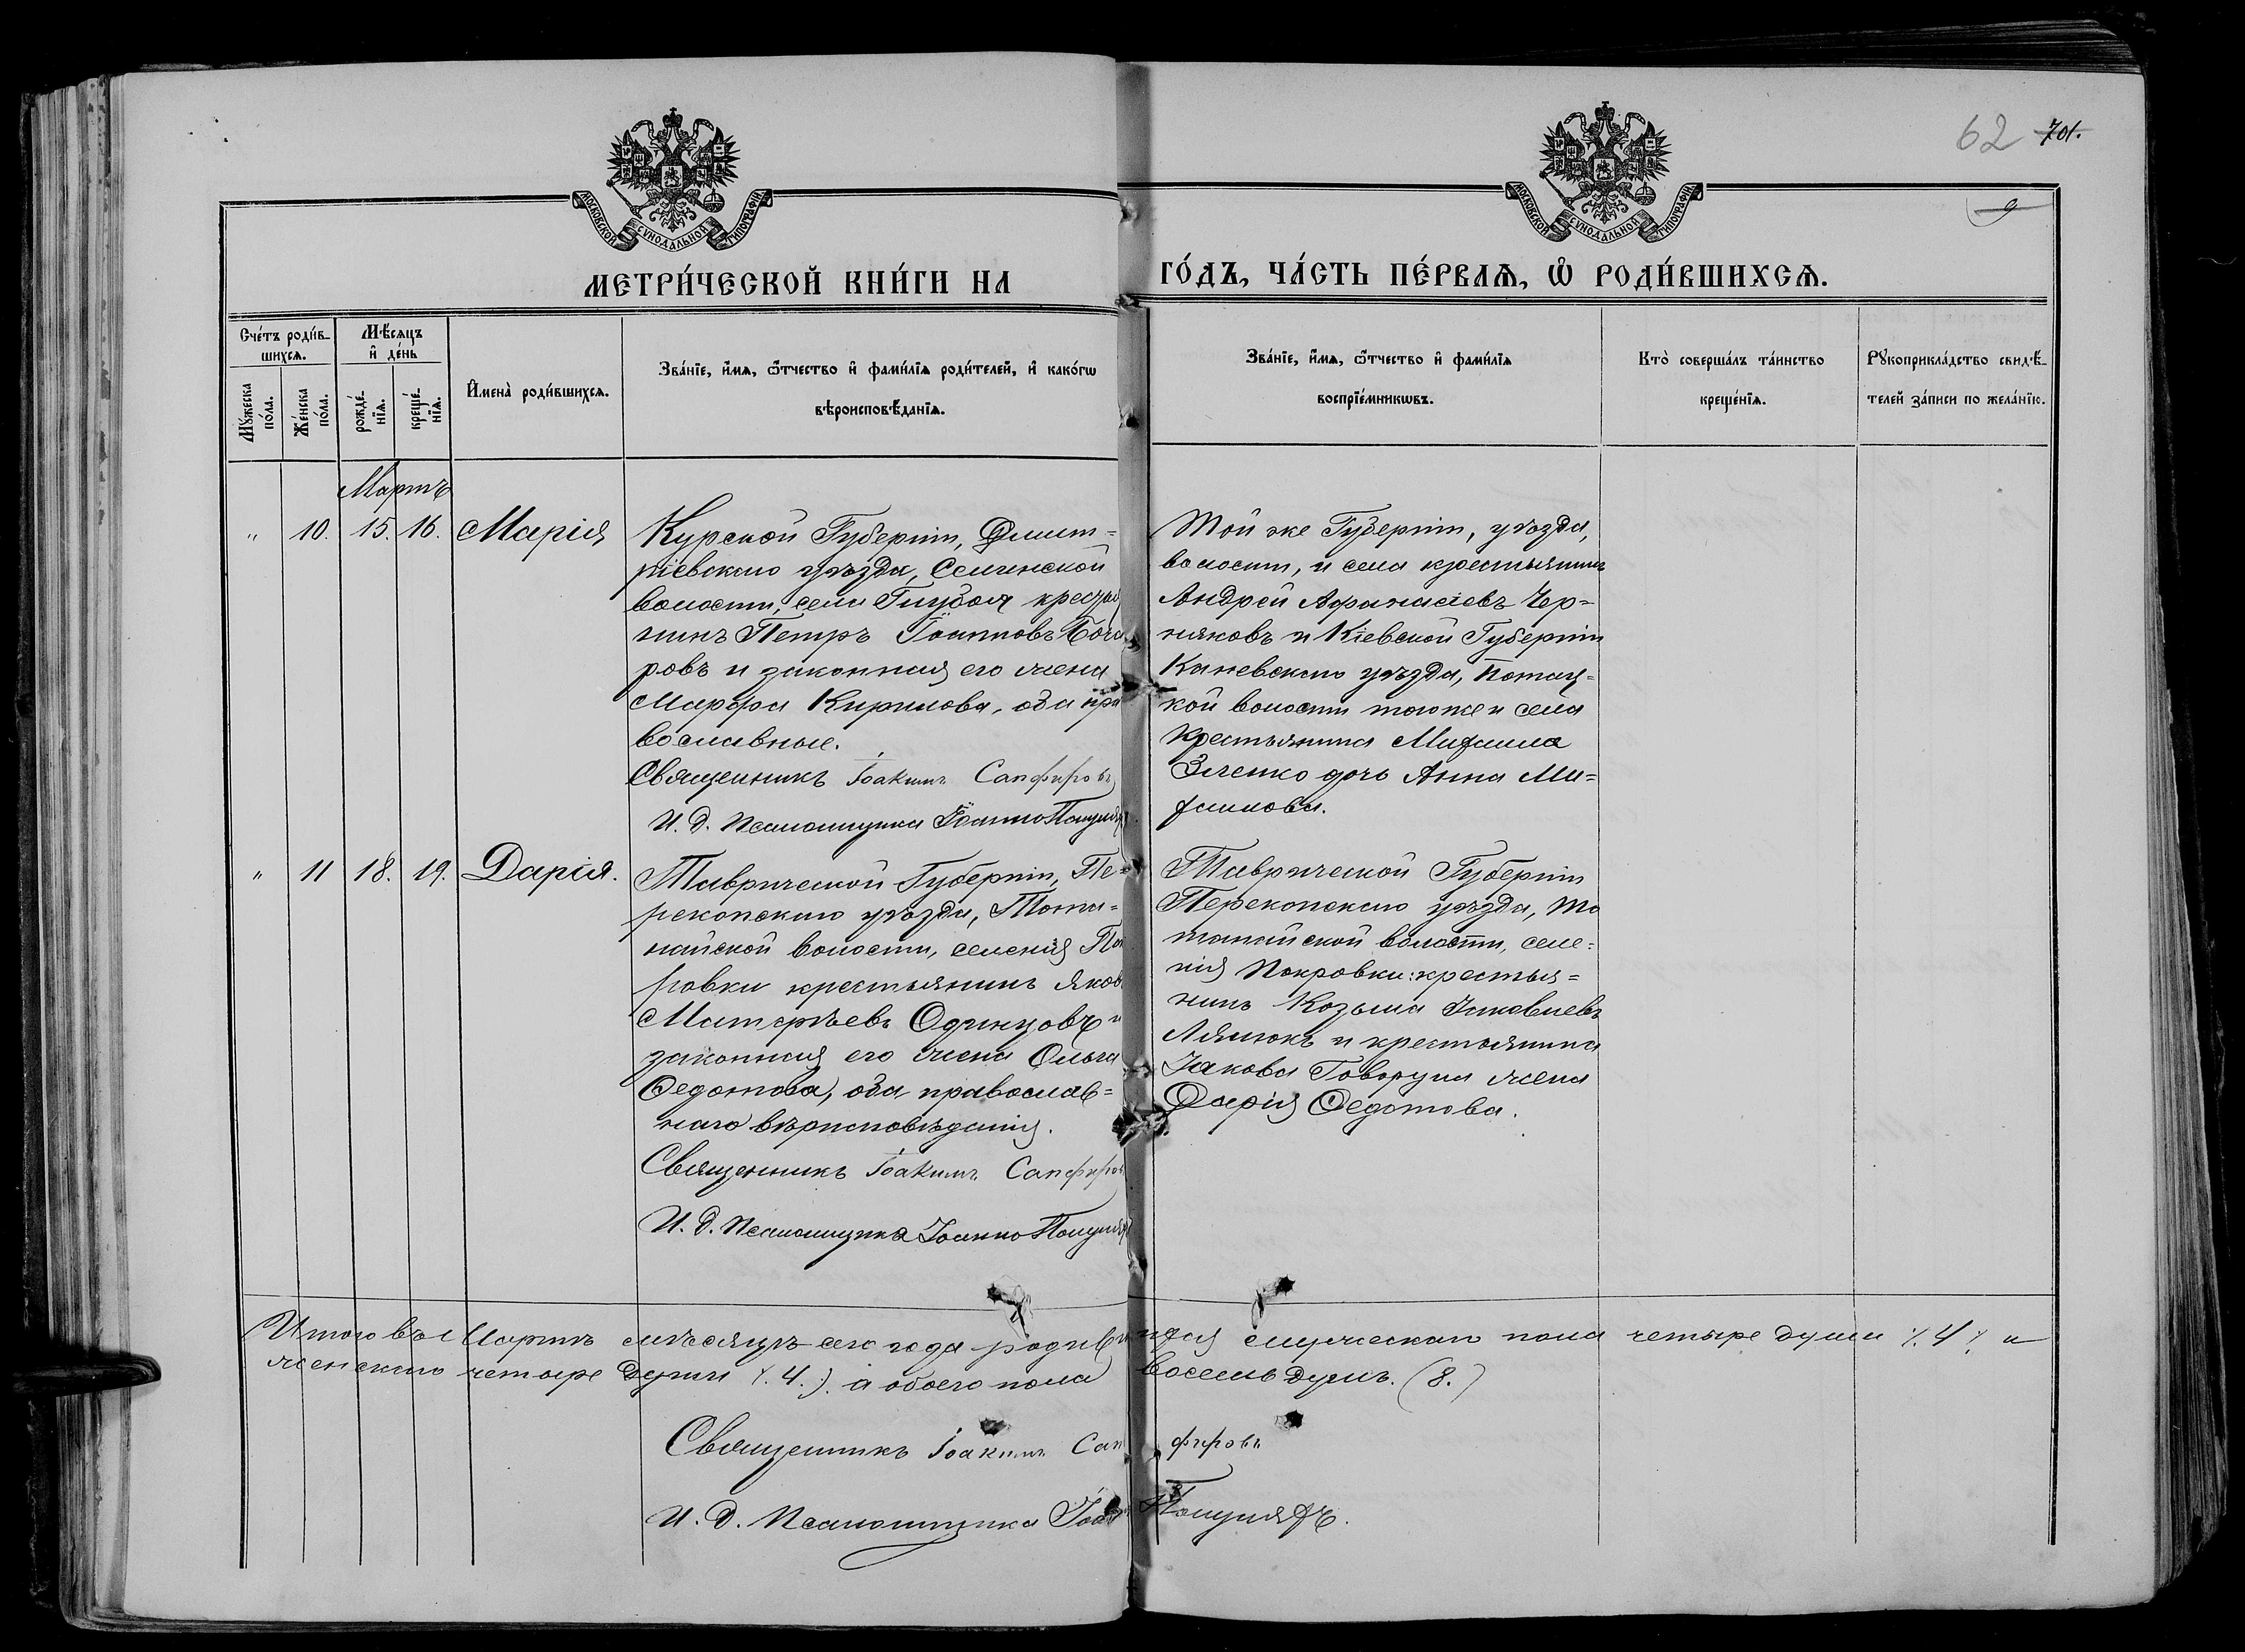 62 701.
МОСКОВСКОЙ СѴНОДАЛЬНОЙ ТИПОГРАФІИ
МОСКОВСКОЙ СѴНОДАЛЬНОЙ ТИПОГРАФІИ
9
МЕТРИ́ЧЕСКОЙ КНИ́ГИ НА ГО́ДЪ, ЧА́СТЬ ПЕ́РВАѦ, Ѡ҆ РОДИ́ВШИХСѦ.
Сче́тъ роди́в-
шихсѧ.
Мѣ́сѧцъ
и҆ де́нь
Мꙋ́жеска по́ла.
Же́нска по́ла.
рожде́-
нїѧ.
креще́-
нїѧ.
И҆мена̀ роди́вшихсѧ.
Зва́нїе, и҆́мѧ, ѻ҆́тчество и҆ фами́лїѧ роди́телей, и҆ како́гѡ
вѣроисповѣ́данїѧ.
Зва́нїе, и҆́мѧ, ѻ҆́тчество и҆ фами́лїѧ
воспрїе́мникѡвъ.
Кто̀ соверша́лъ та́инство
креще́нїѧ.
Рꙋкоприкла́дство свидѣ́-
телей за́писи по жела́нїю.
Мартъ
" 10. 15. 16. Марія
Курской Губерніи, Дмит=
ріевскаго уѣзда, Селинской
волости, села
нинъ Петръ Іоанновъ
ровъ и законная его жена
Марѳа Кирилова, оба пра
вославные.
Священникъ Іоакимъ Сапфировъ
И. д. Псаломщика
Той же Губерніи, уѣзда,
волости, и села крестьянинъ
Андрей Афанасіевъ Чер=
няковъ и Кіевской Губерніи
Каневскаго уѣзда, Потац=
кой волости тогоже и села
крестьянина Михаила
Зленко дочь Анна Ми=
хаилова.
" 11 18. 19. Дарія.
Таврической Губерніи, Пе=
рекопскаго уѣзда, Тота=
найской волости, селенія Пок
ровки крестьянинъ Яков
Матѳѣевъ Одинцовъ и
законная его жена Ольга
Ѳедотова, оба православ=
наго вѣрисповѣданія.
Священникъ Іоакимъ Сапфиров
И. д. Псаломщика
Таврической Губерніи
Перекопскаго уѣзда, То
танайской волости, селе=
нія Покровки: крестья=
нинъ Козьма Іаковлевъ
и крестьянина
Іакова Говоруна жена
Дарія Ѳедотова.
Итого въ Мартѣ мѣсяцѣ сего года родившихся мужескаго пола четыре души /.4./ и
женскаго четыре души /.4.). а обоего пола восемь душъ. (8.)
Священникъ Іоакимъ Сапфировъ
И. д. Псаломщика